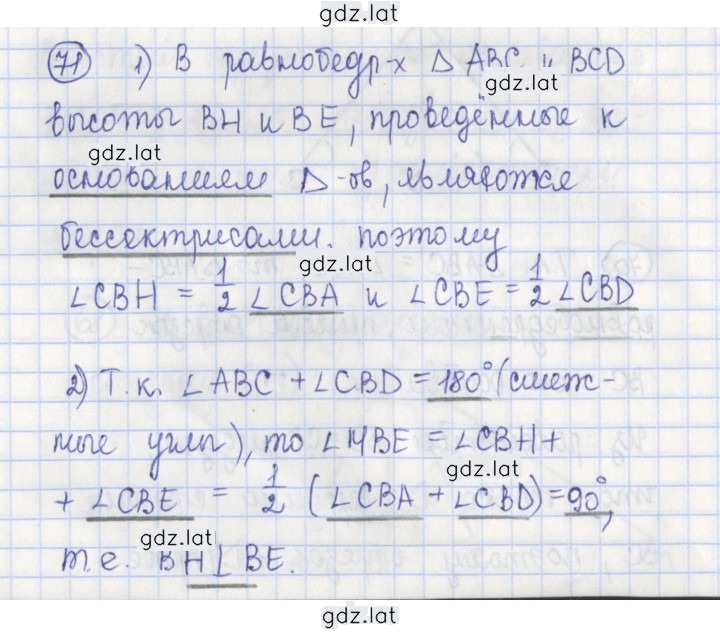 gdz.lat
71 1) В равнобедр-х Δ ABC и BCD
gdz.lat
высоты BH и BE, проведённые к
gdz.lat
основаниям Δ-ов, являются
бессектрисами. поэтому
gdz.lat
∠CBH = 1/2 ∠CBA и ∠CBE = 1/2 ∠CBD
2) Т.к. ∠ABC + ∠CBD = 180° (смеж-
ные углы), то ∠HBE = ∠CBH +
gdz.lat
+ ∠CBE = 1/2 (∠CBA + ∠CBD) = 90°,
gdz.lat
т.е. BH⊥BE.
gdz.lat